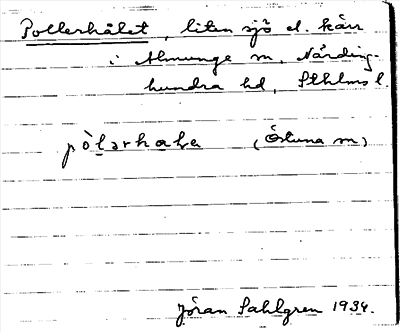 Pollerhålet, liten sjö el. kärr
i Almunge sn, Närding-
hundra hd, Sthlms l.
pòlərhala (Östuna sn)
Jöran Sahlgren 1934.